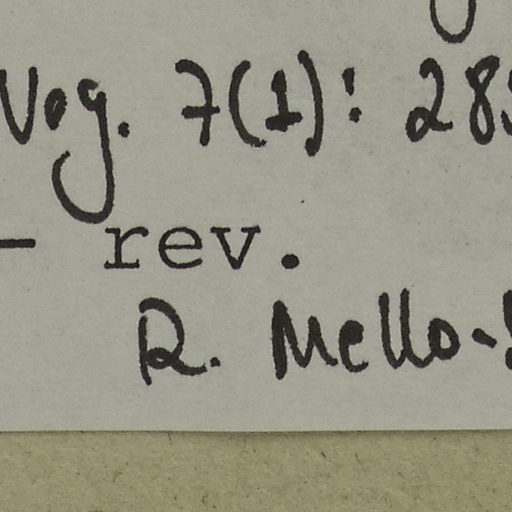 Nov. 7(1): 28
— rev.
R. Mello-